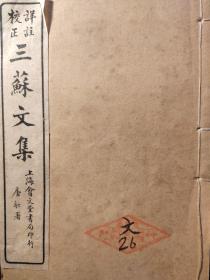 詳註
校正
三蘇文集
上海會文堂書局印行
唐駝署
文
26